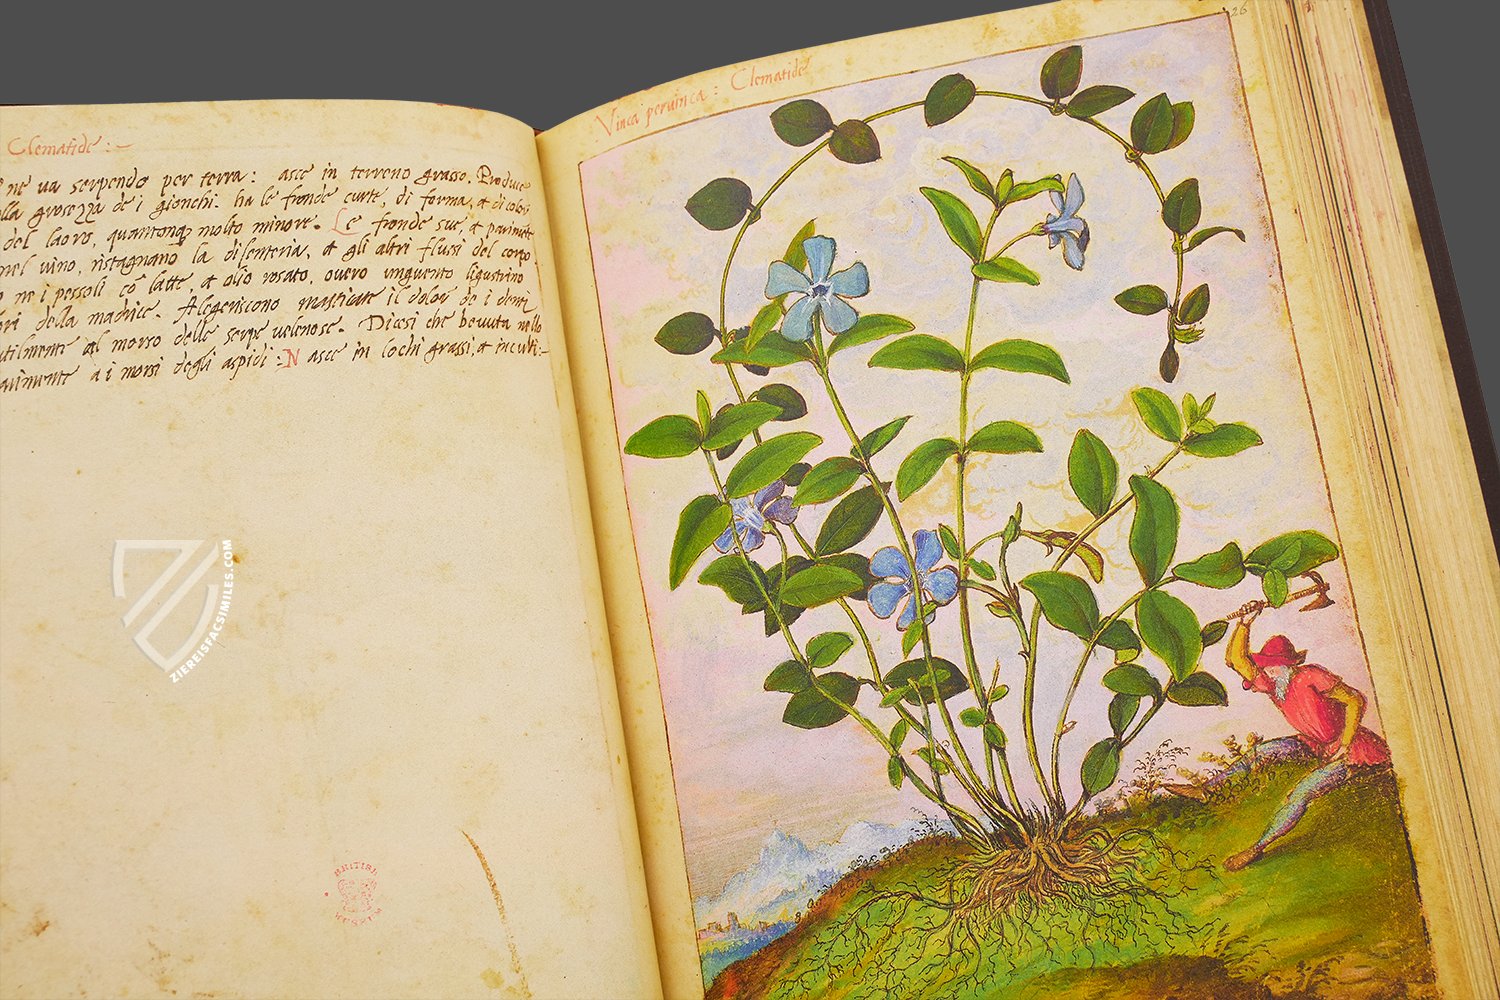 Clematide :~
ne ua serpendo per terra : asce in terreno grasso. Produce
grosezza de i gionchi. ha le fronde curte, di forma, & di colori
del lauro, quantonq; molto minore. Le fronde sue, &
nel uino, ristagnano la disenteria, & gli altri flussi del corpo
ne i pessoli cō latte, & olio rosato, ouero unguento ligustrino
della madrice. Alegeriscono masticate il dolor de i denti
al morso delle serpe uelenose. Dicesi che beuuta nello
a i morsi degli aspidi : Nasce in lochi grassi, & inculti:~
Vinca peruinca : Clematide
26
ZIEREISFACSIMILES.COM
BRITISH
MUSEUM